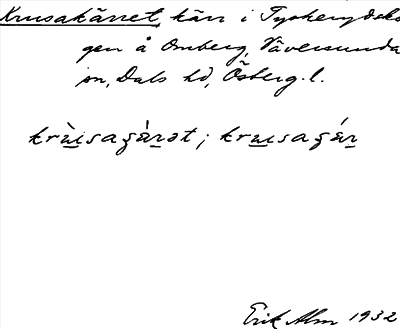 Krusakärret, kärr i Tyskenydsko
gen å Omberg, Väversunda
sn, Dals hd, Österg. l.
krùisagä̀rət; kruisagä́r
Erik Alm 1932